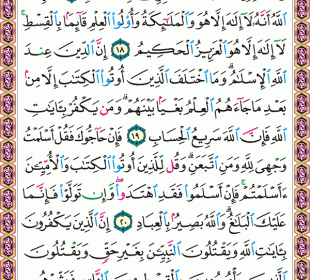 ٱللَّهُ أَنَّهُۥ لَآ إِلَٰهَ إِلَّا هُوَ وَٱلْمَلَٰٓئِكَةُ وَأُو۟لُوا۟ ٱلْعِلْمِ قَآئِمًۢا بِٱلْقِسْطِ ۚ
لَآ إِلَٰهَ إِلَّا هُوَ ٱلْعَزِيزُ ٱلْحَكِيمُ ١٨ إِنَّ ٱلدِّينَ عِندَ
ٱللَّهِ ٱلْإِسْلَٰمُ ۗ وَمَا ٱخْتَلَفَ ٱلَّذِينَ أُوتُوا۟ ٱلْكِتَٰبَ إِلَّا مِنۢ
بَعْدِ مَا جَآءَهُمُ ٱلْعِلْمُ بَغْيًۢا بَيْنَهُمْ ۗ وَمَن يَكْفُرْ بِـَٔايَٰتِ
ٱللَّهِ فَإِنَّ ٱللَّهَ سَرِيعُ ٱلْحِسَابِ ١٩ فَإِنْ حَآجُّوكَ فَقُلْ أَسْلَمْتُ
وَجْهِىَ لِلَّهِ وَمَنِ ٱتَّبَعَنِ ۗ وَقُل لِّلَّذِينَ أُوتُوا۟ ٱلْكِتَٰبَ وَٱلْأُمِّيِّۦنَ
ءَأَسْلَمْتُمْ ۚ فَإِنْ أَسْلَمُوا۟ فَقَدِ ٱهْتَدَوا۟ ۖ وَّإِن تَوَلَّوْا۟ فَإِنَّمَا
عَلَيْكَ ٱلْبَلَٰغُ ۗ وَٱللَّهُ بَصِيرٌۢ بِٱلْعِبَادِ ٢٠ إِنَّ ٱلَّذِينَ يَكْفُرُونَ
بِـَٔايَٰتِ ٱللَّهِ وَيَقْتُلُونَ ٱلنَّبِيِّۦنَ بِغَيْرِ حَقٍّ وَيَقْتُلُونَ